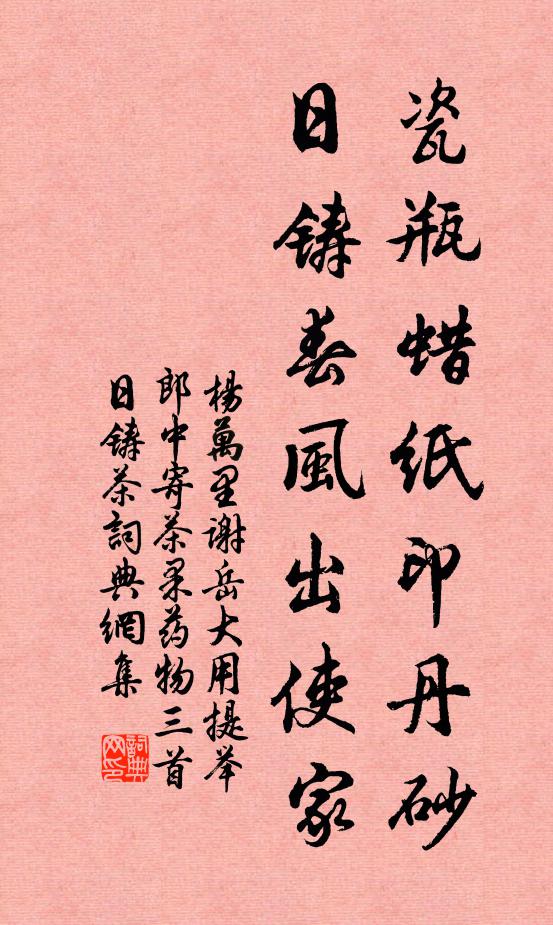 瓷瓶蜡纸印丹砂
日铸春風出使家
楊萬里谢岳大用提举
郎中寄茶果药物三首
日铸茶詞典網集
詞典网印